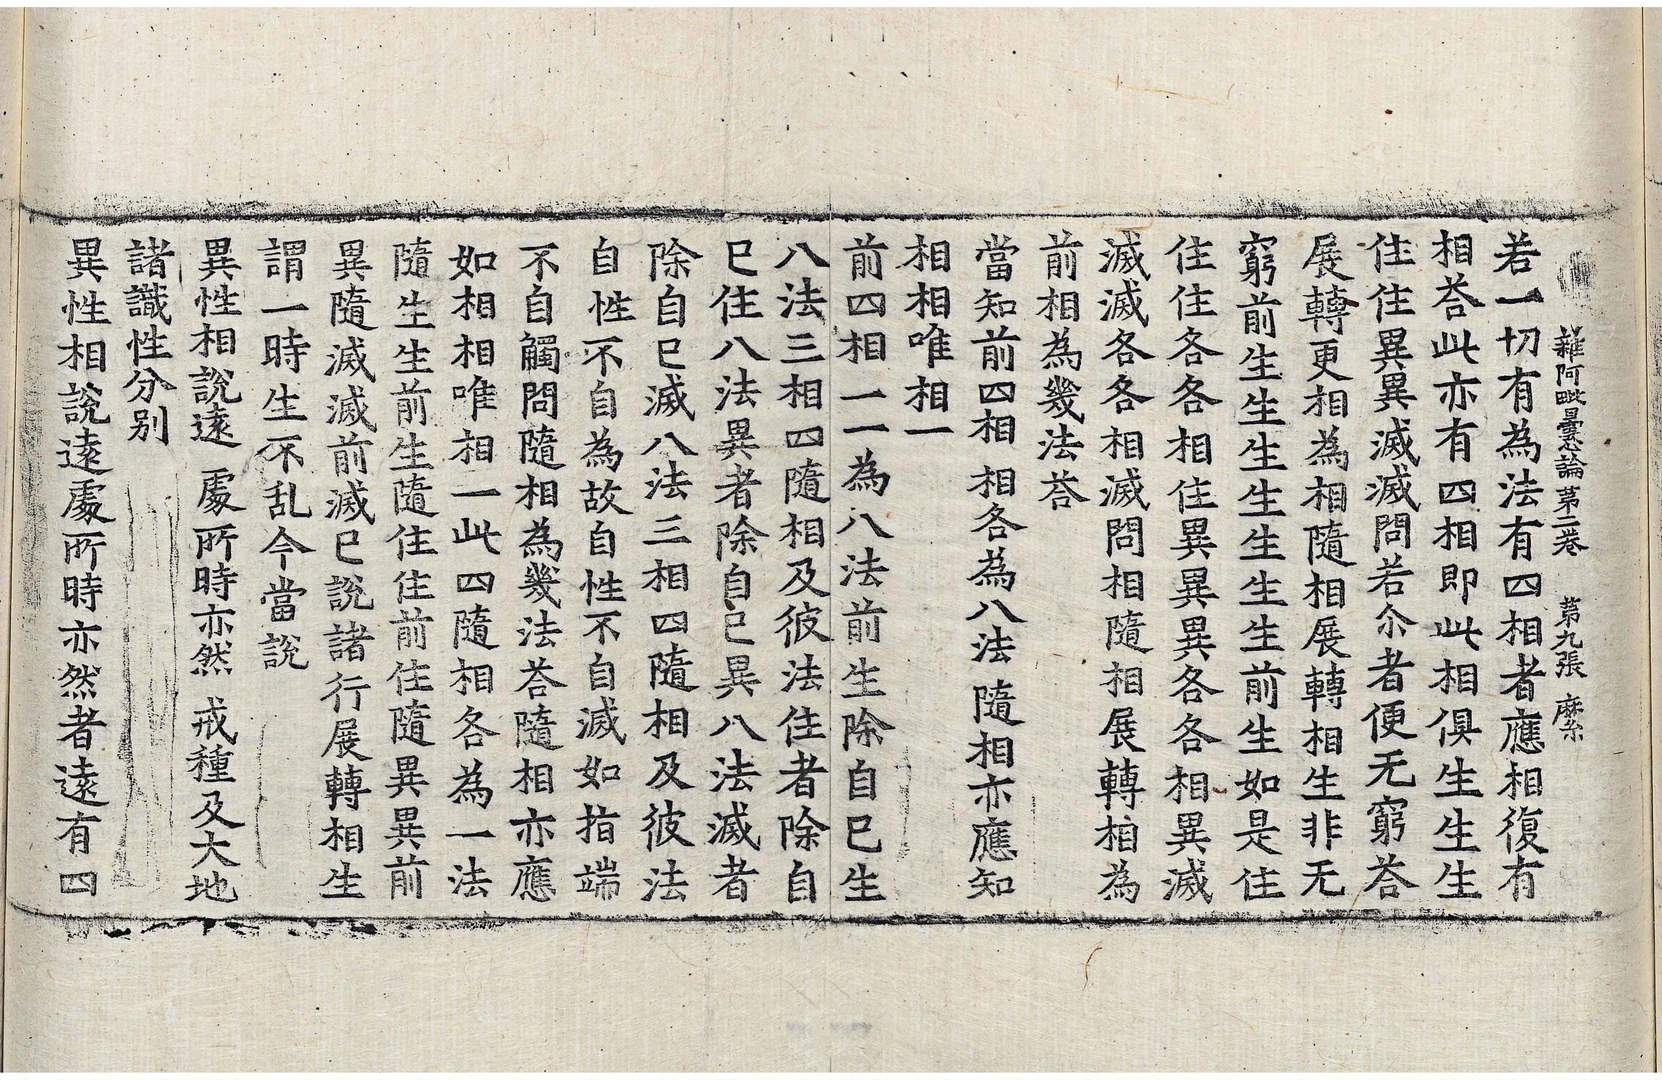 雜阿毗曇心論第二卷 第九張 縻
若一切有為法有四相者應相復有
相荅此亦有四相即此相俱生生生
住住異異滅滅問若尒者便无窮荅
展轉更相為相隨相展轉相生非无
窮前生生生生生生前生如是住
住住各各相住異異各各相異滅
滅滅各各相滅問相隨相展轉相為
前相為幾法荅
當知前四相 相各為八法 隨相亦應知
相相唯相一
前四相一一為八法前生除自已生
八法三相四隨相及彼法住者除自
已住八法異者除自已異八法滅者
除自已滅八法三相四隨相及彼法
自性不自為故自性不自滅如指端
不自觸問隨相為幾法荅隨相亦應
如相相唯相一此四隨相各為一法
隨生生前生隨住住前住隨異異前
異隨滅滅前滅已說諸行展轉相生
謂一時生不乱今當說
異性相說遠 處所時亦然 戒種及大地
諸識性分別
異性相說遠處所時亦然者遠有四